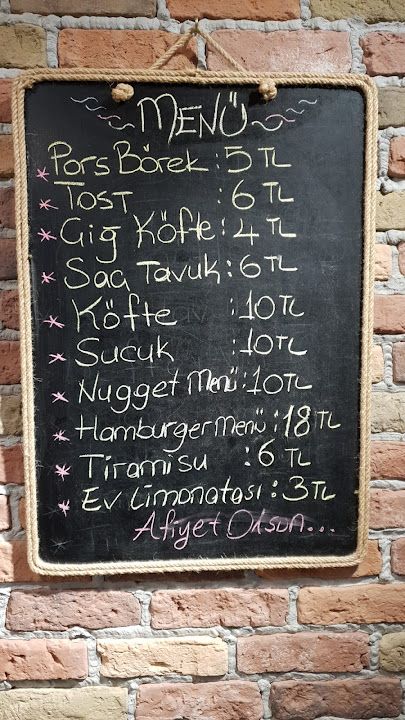 MENÜ
* Pors Börek : 5 TL
* Tost : 6 TL
* Çiğ Köfte : 4 TL
* Saç Tavuk : 6 TL
* Köfte : 10 TL
* Sucuk : 10 TL
* Nugget Menü : 10 TL
* Hamburger Menü : 18 TL
* Tiramisu : 6 TL
* Ev Limonatası : 3 TL
Afiyet Olsun...